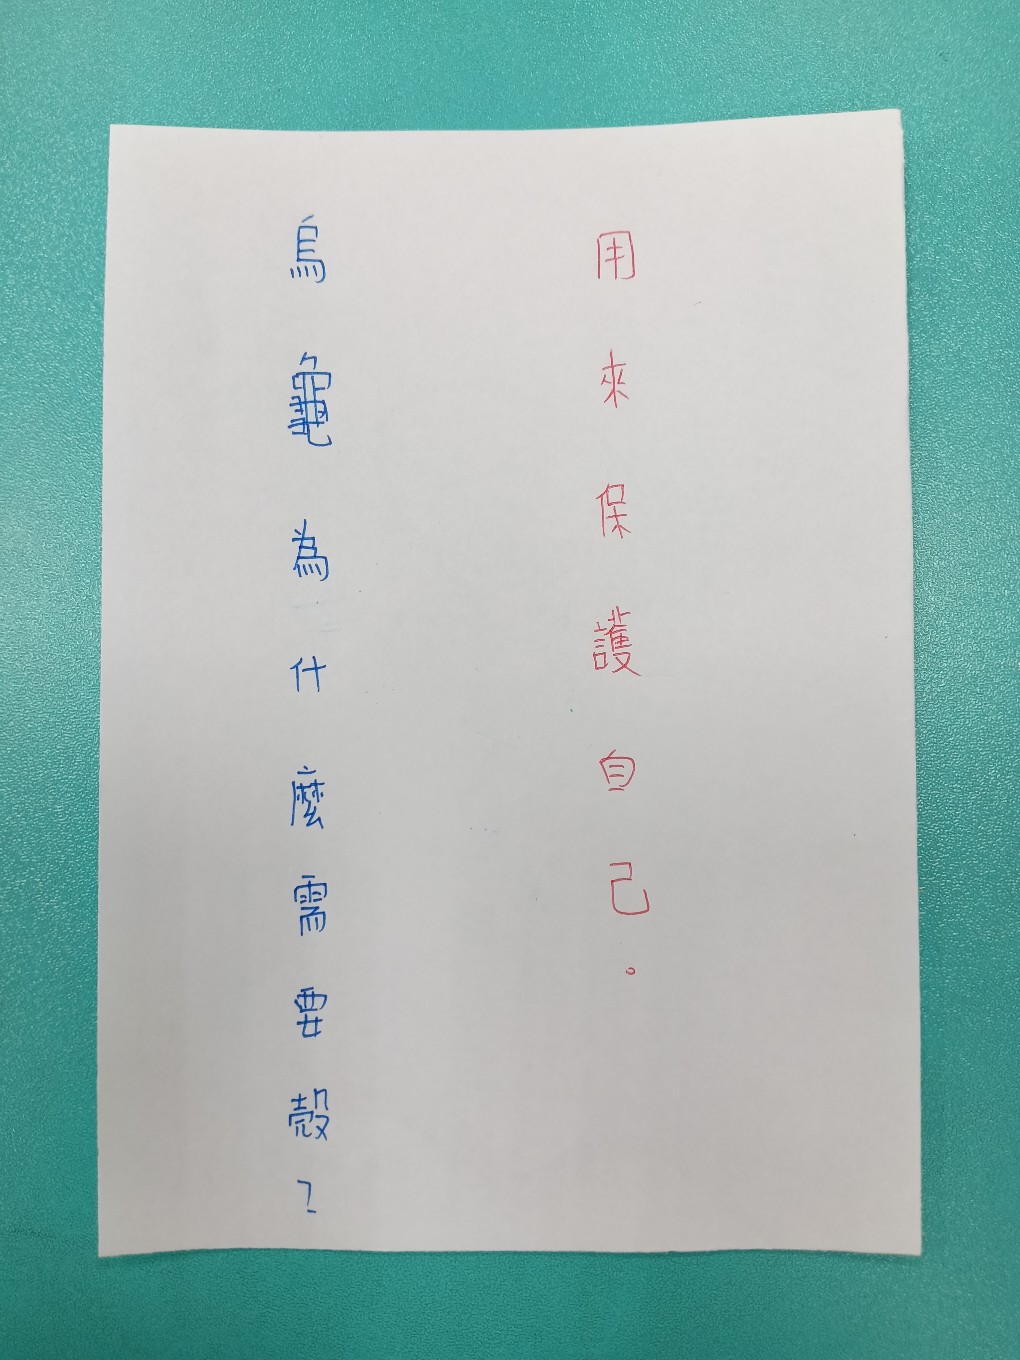 烏龜為什麼需要殼？
用來保護自己。